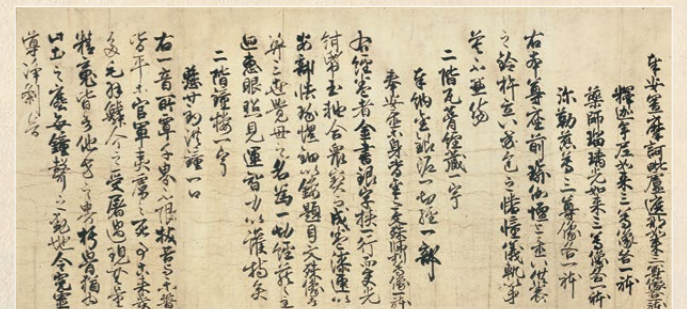 奉安置摩訶毗盧遮那如来三尊像各一体
釈迦牟尼如来三尊像各一体
薬師瑠璃光如来三尊像各一体
弥勒慈尊三尊像各一体
右本尊座前瑜伽壇上
之鈴杵立以五色之幡幢儀軌
二階瓦葺経蔵一宇
奉納金銀泥一切経一部
奉安置等身皆金色文殊師利尊像一体
右経巻者金書銀字挟一行而交光
紺紙玉軸合衆宝而成巻漆匣以
安部帙琢螺鈿以鏤題目文殊像者
三世覚母之名為一切経蔵之主
廻恵眼照見運智力以護持矣
二階鐘楼一宇
懸廿鈞洪鐘一口
右一音所覃千界不限抜苦与楽普
皆平等官軍夷虜之死事古来幾
多毛羽鱗介之受屠過現無量
精魂皆去他方之界朽骨猶為
此土之塵毎鐘声之動地令冤霊
導浄刹矣